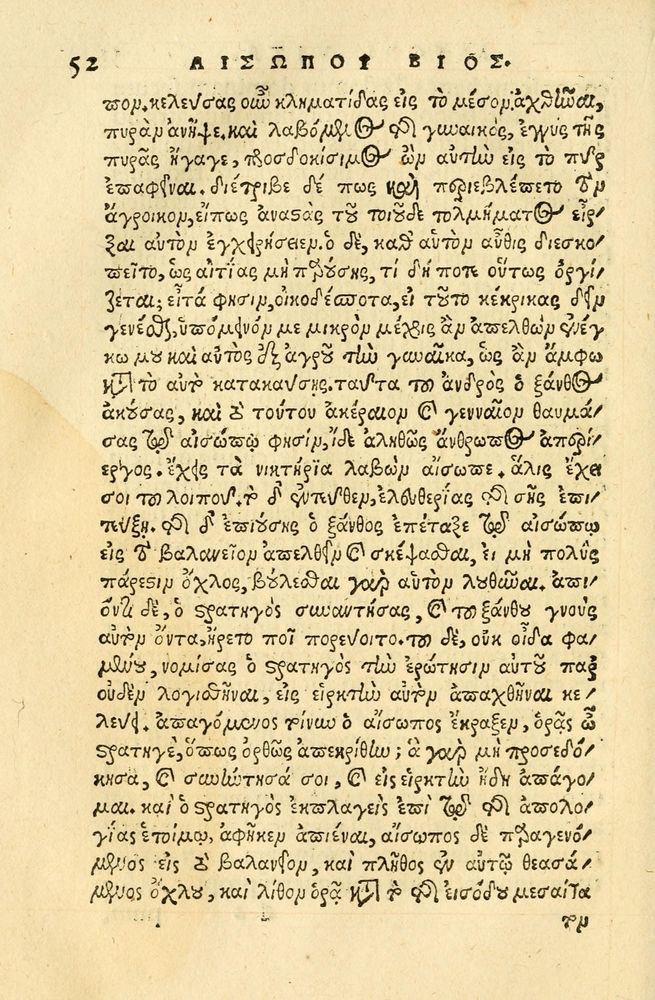 52 ΑΙΣΩΠΟΥ ΒΙΟΣ.
πον. κελεύσας οὖν κληματίδας εἰς τὸ μέσον ἀχθῆναι,
πυρὰν ἀνῆψε. καὶ λαβόμενος τῆς γυναικός, ἐγγὺς τῆς
πυρᾶς ἤγαγε, προσδοκίσιμος ὢν αὐτὴν εἰς τὸ πῦρ
ἐπαφεῖναι. διέτριβε δέ πως καὶ περιεβλέπετο τὸν
ἄγροικον, εἴπως ἀναστὰς τοῦ τοιοῦδε τολμήματος εἶρ-
ξαι αὐτὸν ἐγχειρήσειεν. ὁ δὲ, καθ' αὑτὸν αὖθις διεσκο-
πεῖτο, ὡς αἰτίας μὴ παρούσης, τί δήποτε οὕτως ὀργί-
ζεται; εἶτά φησιν, οἰκοδέσποτα, εἰ τοῦτο κέκρικας δεῖν
γενέσθαι, ὑπόμεινόν με μικρὸν μέχρις ἂν ἀπελθὼν ἐνέγ
κω μου καὶ αὐτὸς ἐξ ἀγροῦ τὴν γυναῖκα, ὡς ἂν ἄμφω
κατὰ τὸ αὐτὸ κατακαύσῃς. ταῦτα τοῦ ἀνδρὸς ὁ ξάνθος
ἀκούσας, καὶ τὸ τούτου ἀκέραιον καὶ γενναῖον θαυμά-
σας τῷ αἰσώπῳ φησίν, ἴδε ἀληθῶς ἄνθρωπος ἀπερί-
εργος. ἔχεις τὰ νικητήρια λαβὼν αἴσωπε. ἅλις ἔχει
σοι τοῦ λοιποῦ. τὸ δ' ἐντεῦθεν, ἐλευθερίας τῆς σῆς ἐπι-
τεύξῃ. τῇ δ' ἐπιούσῃς ὁ ξάνθος ἐπέταξε τῷ αἰσώπῳ
εἰς τὸ βαλανεῖον ἀπελθεῖν καὶ σκέψασθαι, εἰ μὴ πολὺς
πάρεστιν ὄχλος, βούλεσθαι γὰρ αὐτὸν λουθῆναι. ἀπι-
όντι δὲ, ὁ στρατηγὸς συναντήσας, καὶ τοῦ ξάνθου γνοὺς
αὐτὸν ὄντα, ἤρετο ποῖ πορεύοιτο. τοῦ δὲ, οὐκ οἶδα φα-
μένου, νομίσας ὁ στρατηγὸς τὴν ἐρώτησιν αὐτοῦ παρ'
οὐδὲν λογισθῆναι, εἰς εἱρκτὴν αὐτὸν ἀπαχθῆναι κε-
λεύει. ἀπαγόμενος τοίνυν ὁ αἴσωπος ἔκραξεν, ὁρᾷς ὦ
στρατηγὲ, ὅπως ὀρθῶς ἀπεκρίθην; ἃ γὰρ μὴ προσεδό-
κησα, καὶ συνήντησά σοι, καὶ εἰς εἱρκτὴν ἤδη ἀπάγο-
μαι. καὶ ὁ στρατηγὸς ἐκπλαγεὶς ἐπὶ τῷ τῆς ἀπολο-
γίας ἑτοίμῳ, ἀφῆκεν ἀπιέναι, αἴσωπος δὲ παραγενό-
μενος εἰς τὸ βαλανεῖον, καὶ πλῆθος ἐν αὐτῷ θεασά-
μενος ὄχλου, καὶ λίθον ὁρᾷ κατὰ τὸ τῆς εἰσόδου μεσαίτα
τον